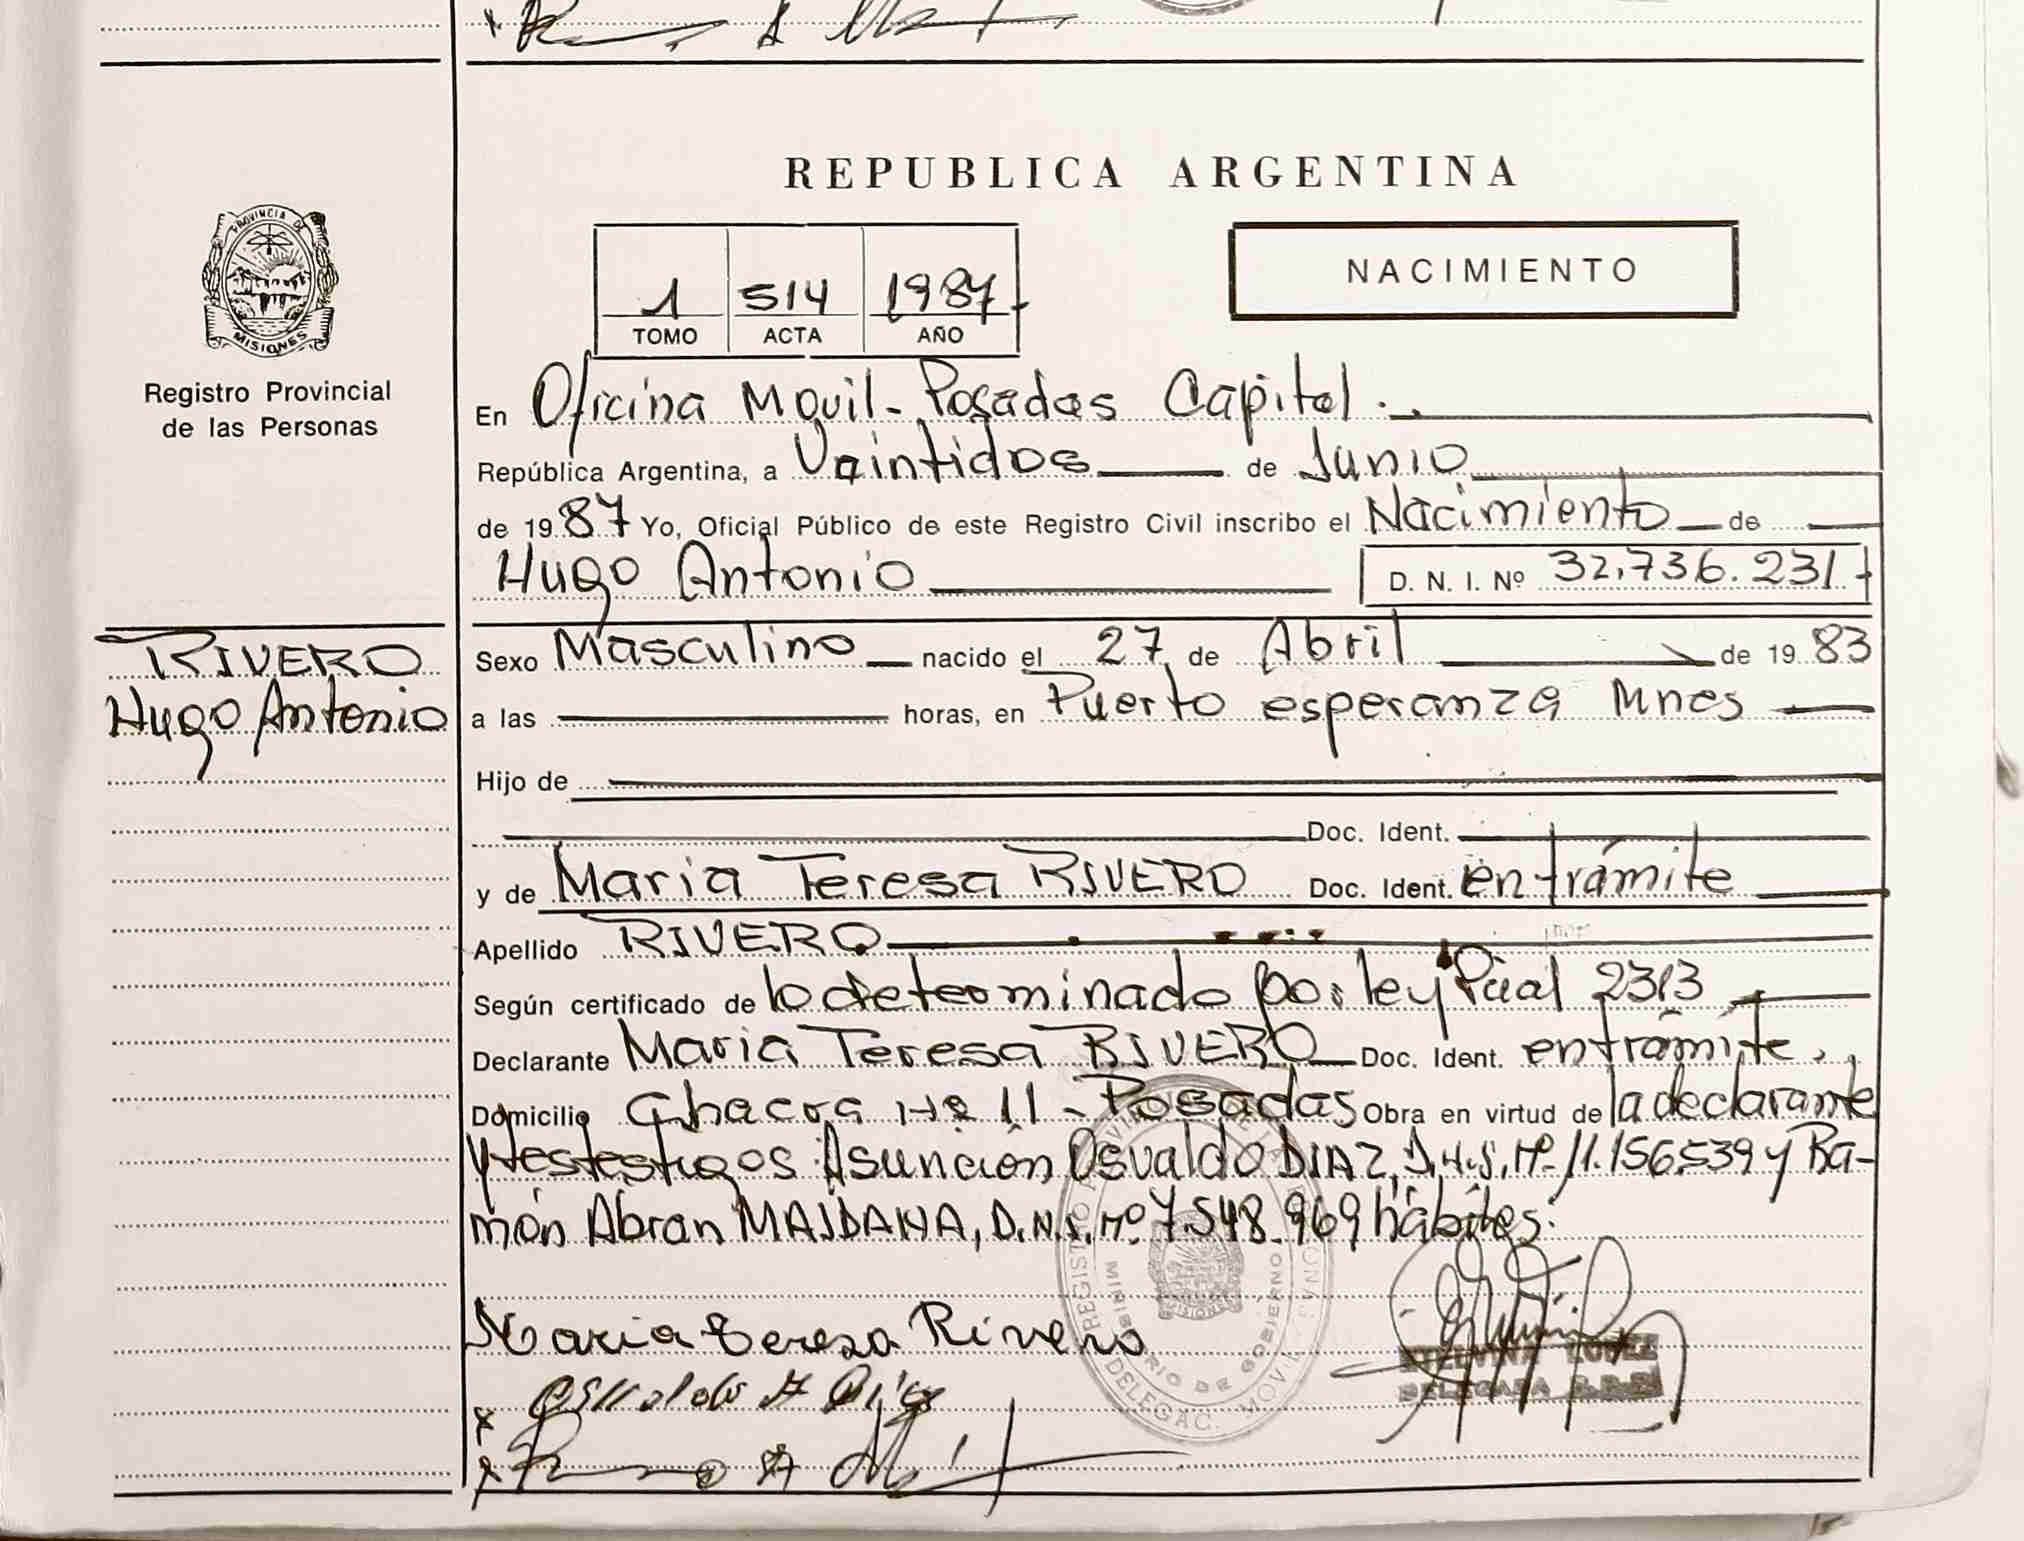 REPUBLICA ARGENTINA
PROVINCIA DE
MISIONES
Registro Provincial
de las Personas
1 514 1987
TOMO ACTA AÑO
NACIMIENTO
En Oficina Movil - Posadas Capital.
República Argentina, a Veintidos de Junio
de 1987 Yo, Oficial Público de este Registro Civil inscribo el Nacimiento de
Hugo Antonio D. N. I. Nº 32.736.231
RIVERO
Hugo Antonio
Sexo Masculino nacido el 27 de Abril de 1983
a las horas, en Puerto esperanza Mnes
Hijo de
Doc. Ident.
y de Maria Teresa RIVERO Doc. Ident. en trámite
Apellido RIVERO
Según certificado de lo determinado por ley Pcial 2313
Declarante Maria Teresa RIVERO Doc. Ident. en trámite.
Domicilio Chacra Nº 11 - Posadas Obra en virtud de la declarante
y testestigos Asunción Osvaldo DIAZ, D.N.I. Nº 11.156.539 y Ra-
món Abran MAIDANA, D.N.I. Nº 7.548.969 hábiles.
Maria teresa Rivero
MINISTERIO DE GOBIERNO
DELEGAC. MOVIL
LOPEZ
DELEGADA